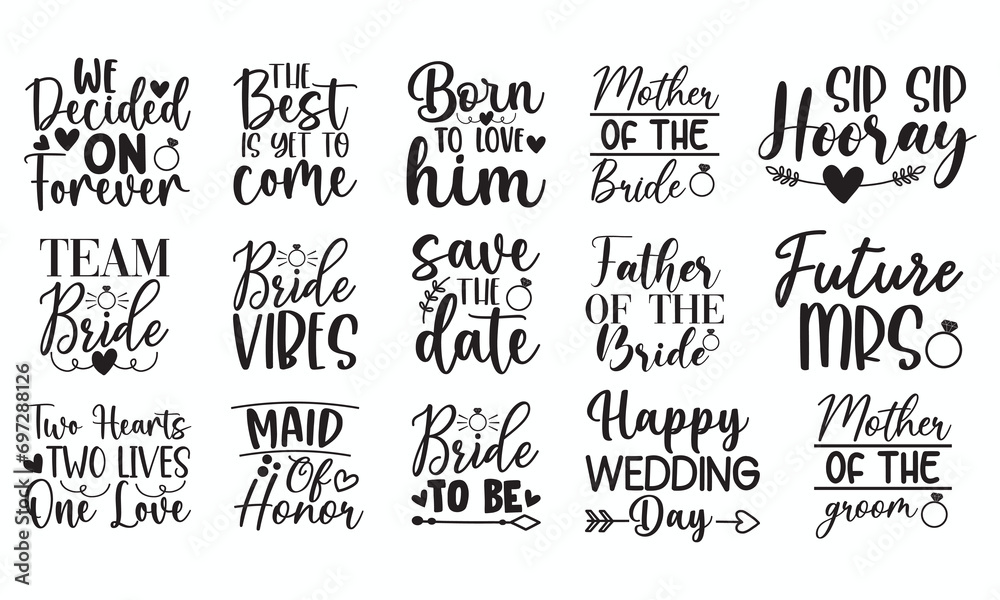 WE
Decided
ON
Forever
THE
Best
IS YET TO
come
Born
TO LOVE
him
Mother
OF THE
Bride
SIP SIP
Hooray
TEAM
Bride
Bride
VIBES
save
THE
date
Father
OF THE
Bride
Future
MRS
Two Hearts
TWO LIVES
One Love
MAID
Of
Honor
Bride
TO BE
Happy
WEDDING
Day
Mother
OF THE
groom
Adobe Stock | #697288126